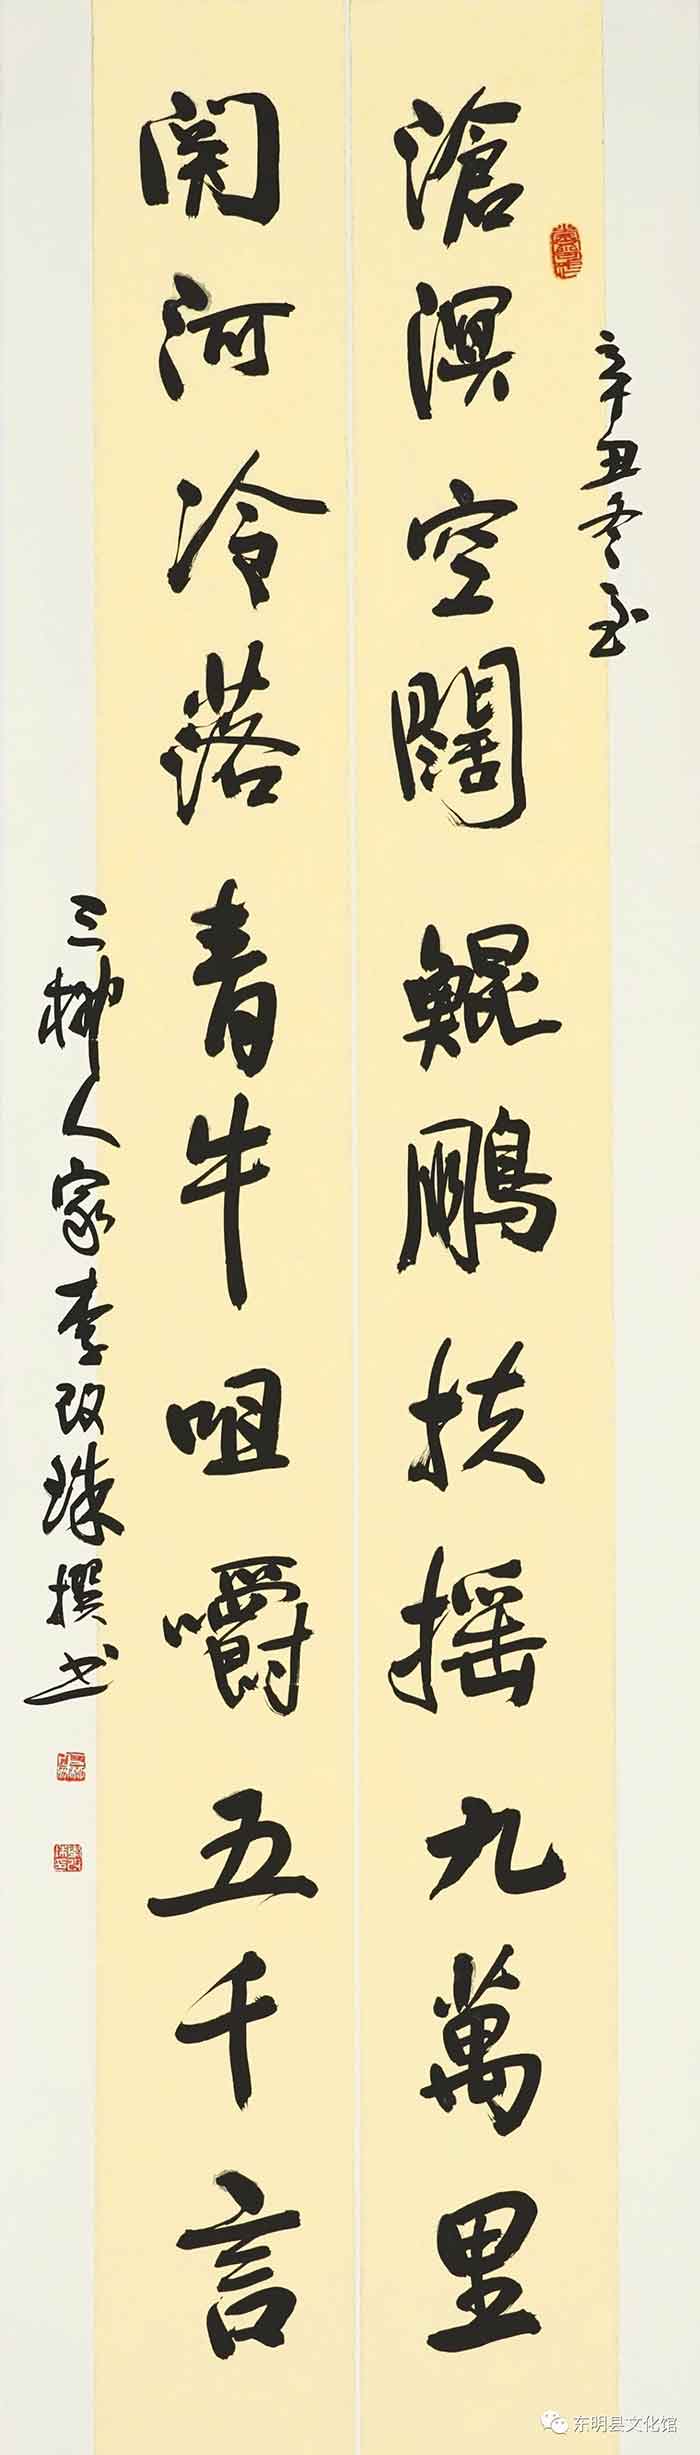 辛丑冬至
滄溟空闊鯤鵬扶摇九萬里
関河冷落青牛咀嚼五千言
三柳人家李改珠撰书
东明县文化馆